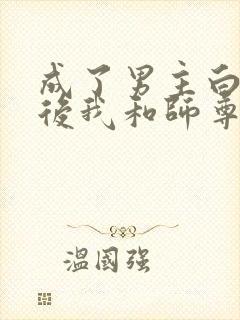 成了男主白
後我和師尊
溫國强